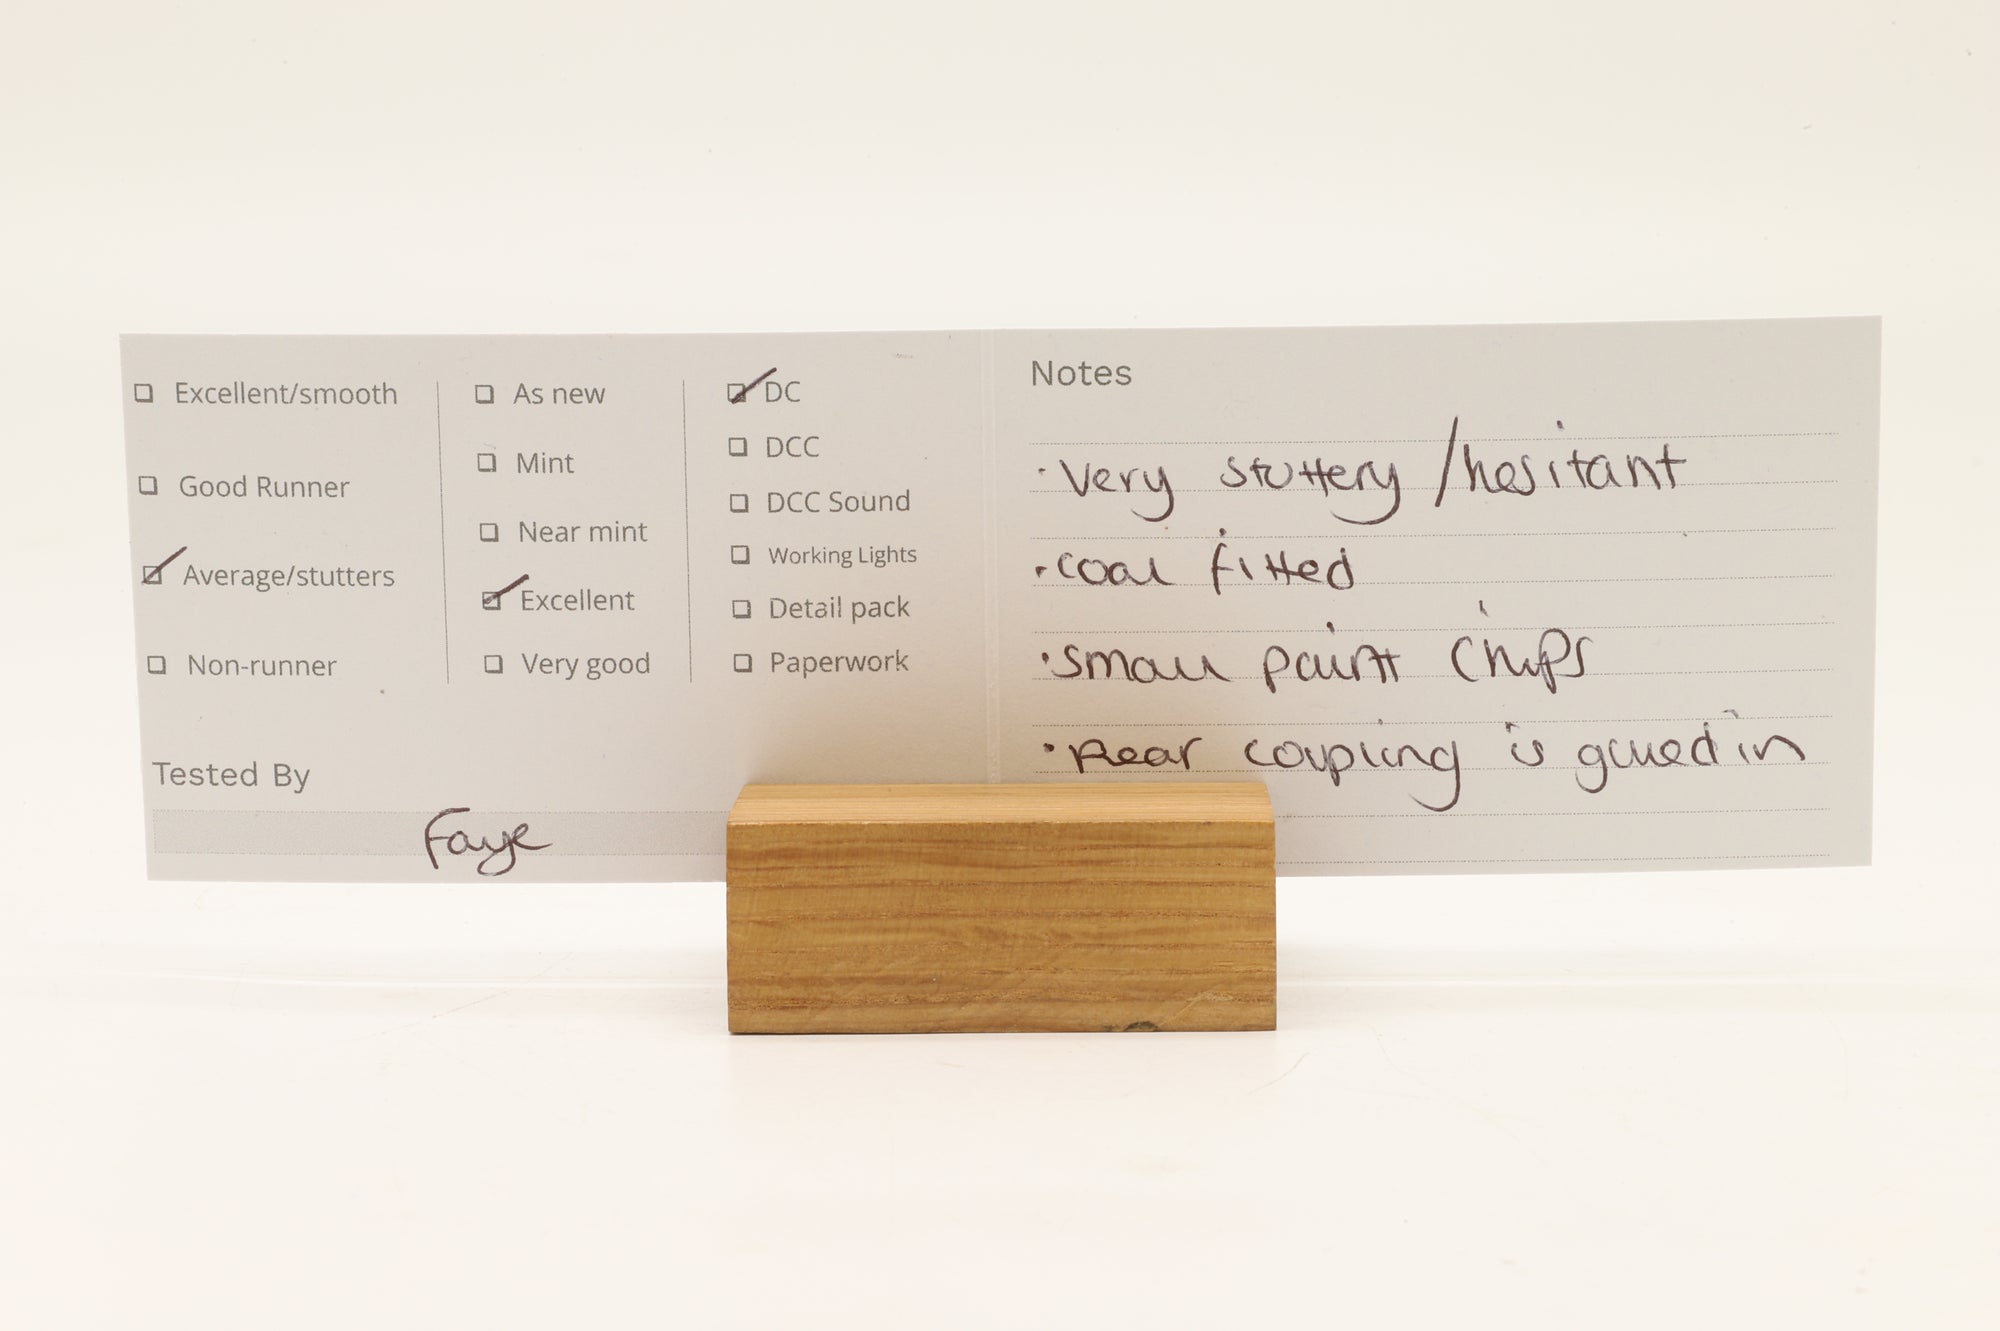 Excellent/smooth
Good Runner
Average/stutters
Non-runner
As new
Mint
Near mint
Excellent
Very good
DC
DCC
DCC Sound
Working Lights
Detail pack
Paperwork
Tested By
Faye
Notes
· Very stuttery / hesitant
· coal fitted
· small paint chips
· Rear coupling is glued in